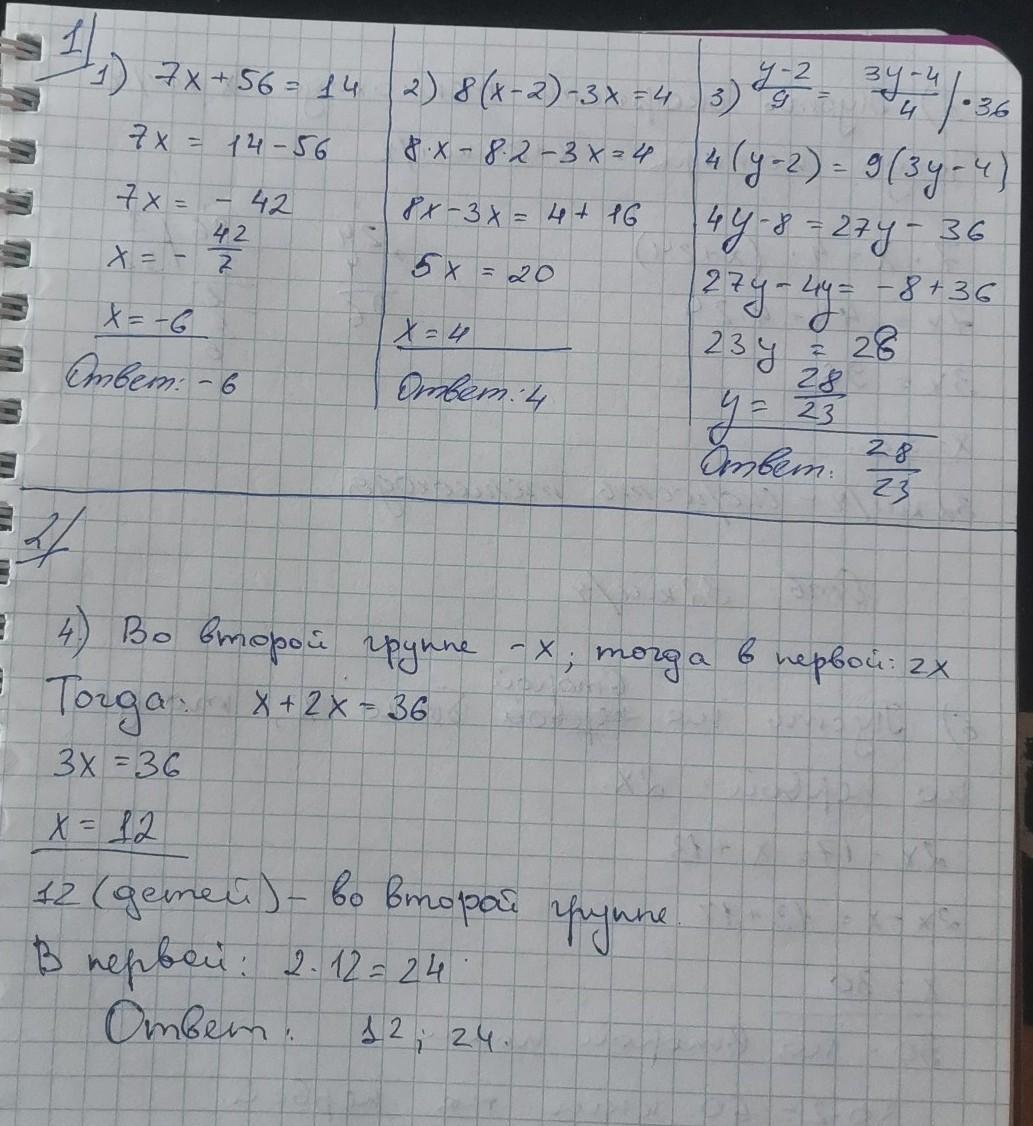 1/
1) 7x + 56 = 14
7x = 14 - 56
7x = - 42
x = - 42/7
x = -6
Ответ: -6
2) 8(x-2)-3x=4
8·x - 8·2 - 3x = 4
8x - 3x = 4 + 16
5x = 20
x = 4
Ответ: 4
3) y-2/9 = 3y-4/4 /·36
4(y-2) = 9(3y-4)
4y-8 = 27y - 36
27y - 4y = -8+36
23y = 28
y = 28/23
Ответ: 28/23
2/
4.) Во второй группе - x; тогда в первой: 2x
Тогда: x + 2x = 36
3x = 36
x = 12
12 (детей) - во второй группе.
В первой: 2·12 = 24
Ответ: 12; 24.